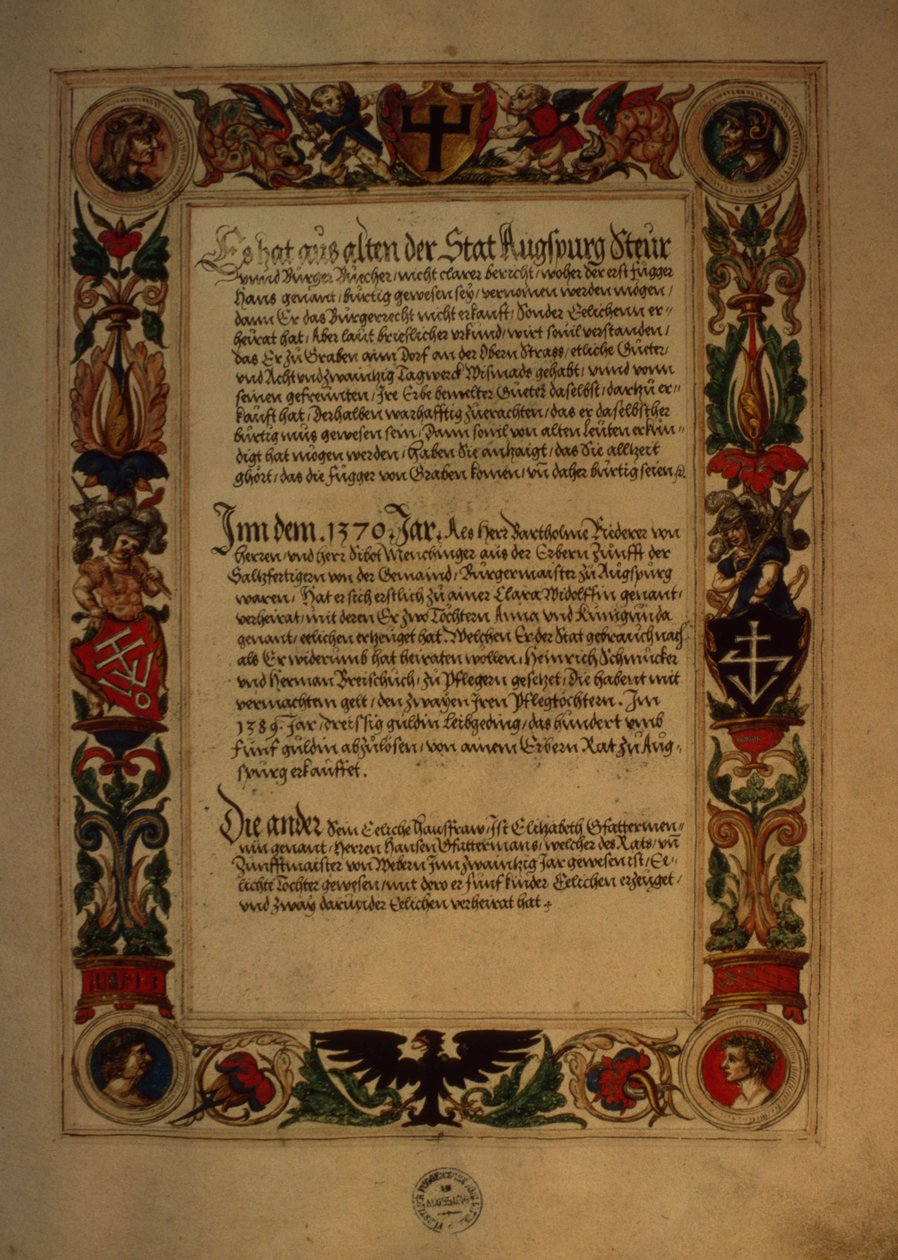 Es hat aus alten der Stat Augspurg Steur
vnnd Burger Buecher / nicht clarer bericht / woher der erst Fugger
Hans genant / burtig gewesen sey / vernomen werden mögen /
dann Er das Burgerrecht nicht erkaufft / Sonder Eelichenn er-
heurat hat / Aber laut brieflicher vrkund / wirt souil verstanden /
das Er zu Graben aim Dorf an der Obern Strass / etliche Güeter /
vnd Acht vnd zwaintzig Tagwerck Wismads gehabt / vnnd vonn
seinen gefreundten / Ire Erbe bemelter Güeter daselbst / dartzu er-
kaufft hat / Derhalben warhafftig zuerachten / das er daselbsther
burtig mus gewesen sein / Dann souil von alten leuten erkun-
digt hat mögen werden / haben Sie antzaigt / das Sie alltzeit
ghört / das die Fugger von Graben komen / vnd daher burtig seien /
Inn dem . 1370 . Jar . Als Herr Bartholme Riederer von
Herren / vnd herr Dibot Menchinger aus der Erbern Zunfft der
Saltzfertigern von der Gemaind / Burgermaister zu Augspurg
waren / Hat er sich erstlich zu ainer Clara Widolffin genant /
verheirat / mit deren Er zwo Töchtern Anna vnd Kunigunda
genant / eelichen ertzeuget hat. Welchen Er der Stat gebrauch nach
als Er widerumb hat heiraten wollen / Heinrich Schmucker
vnd Herman Breischuch / zu Pflegern gesetzt / Die habent mit
vermachtem gelt / den zwayen Iren Pflegtöchtern . Im
1389. Jar / dreissig guldin Leibgeding / das hundert vmb
funf guldin abzulösen / von ainem Erbern Rat zu Aug-
spurg erkauffet .
Die ander Sein Eeliche Hausfraw / Ist Elizabeth Gfattermen-
nin genant / Herren Hansen Gfattermans / welcher des Rats / vnd
Zunfftmaister von Webern Inn zwaintzig Jar gewesen ist / Ee-
lichte Tochter gewesen / mit dero er funf kinder Eelichen ertzeuget /
vnd zway darunder Eelichen verheirat hat